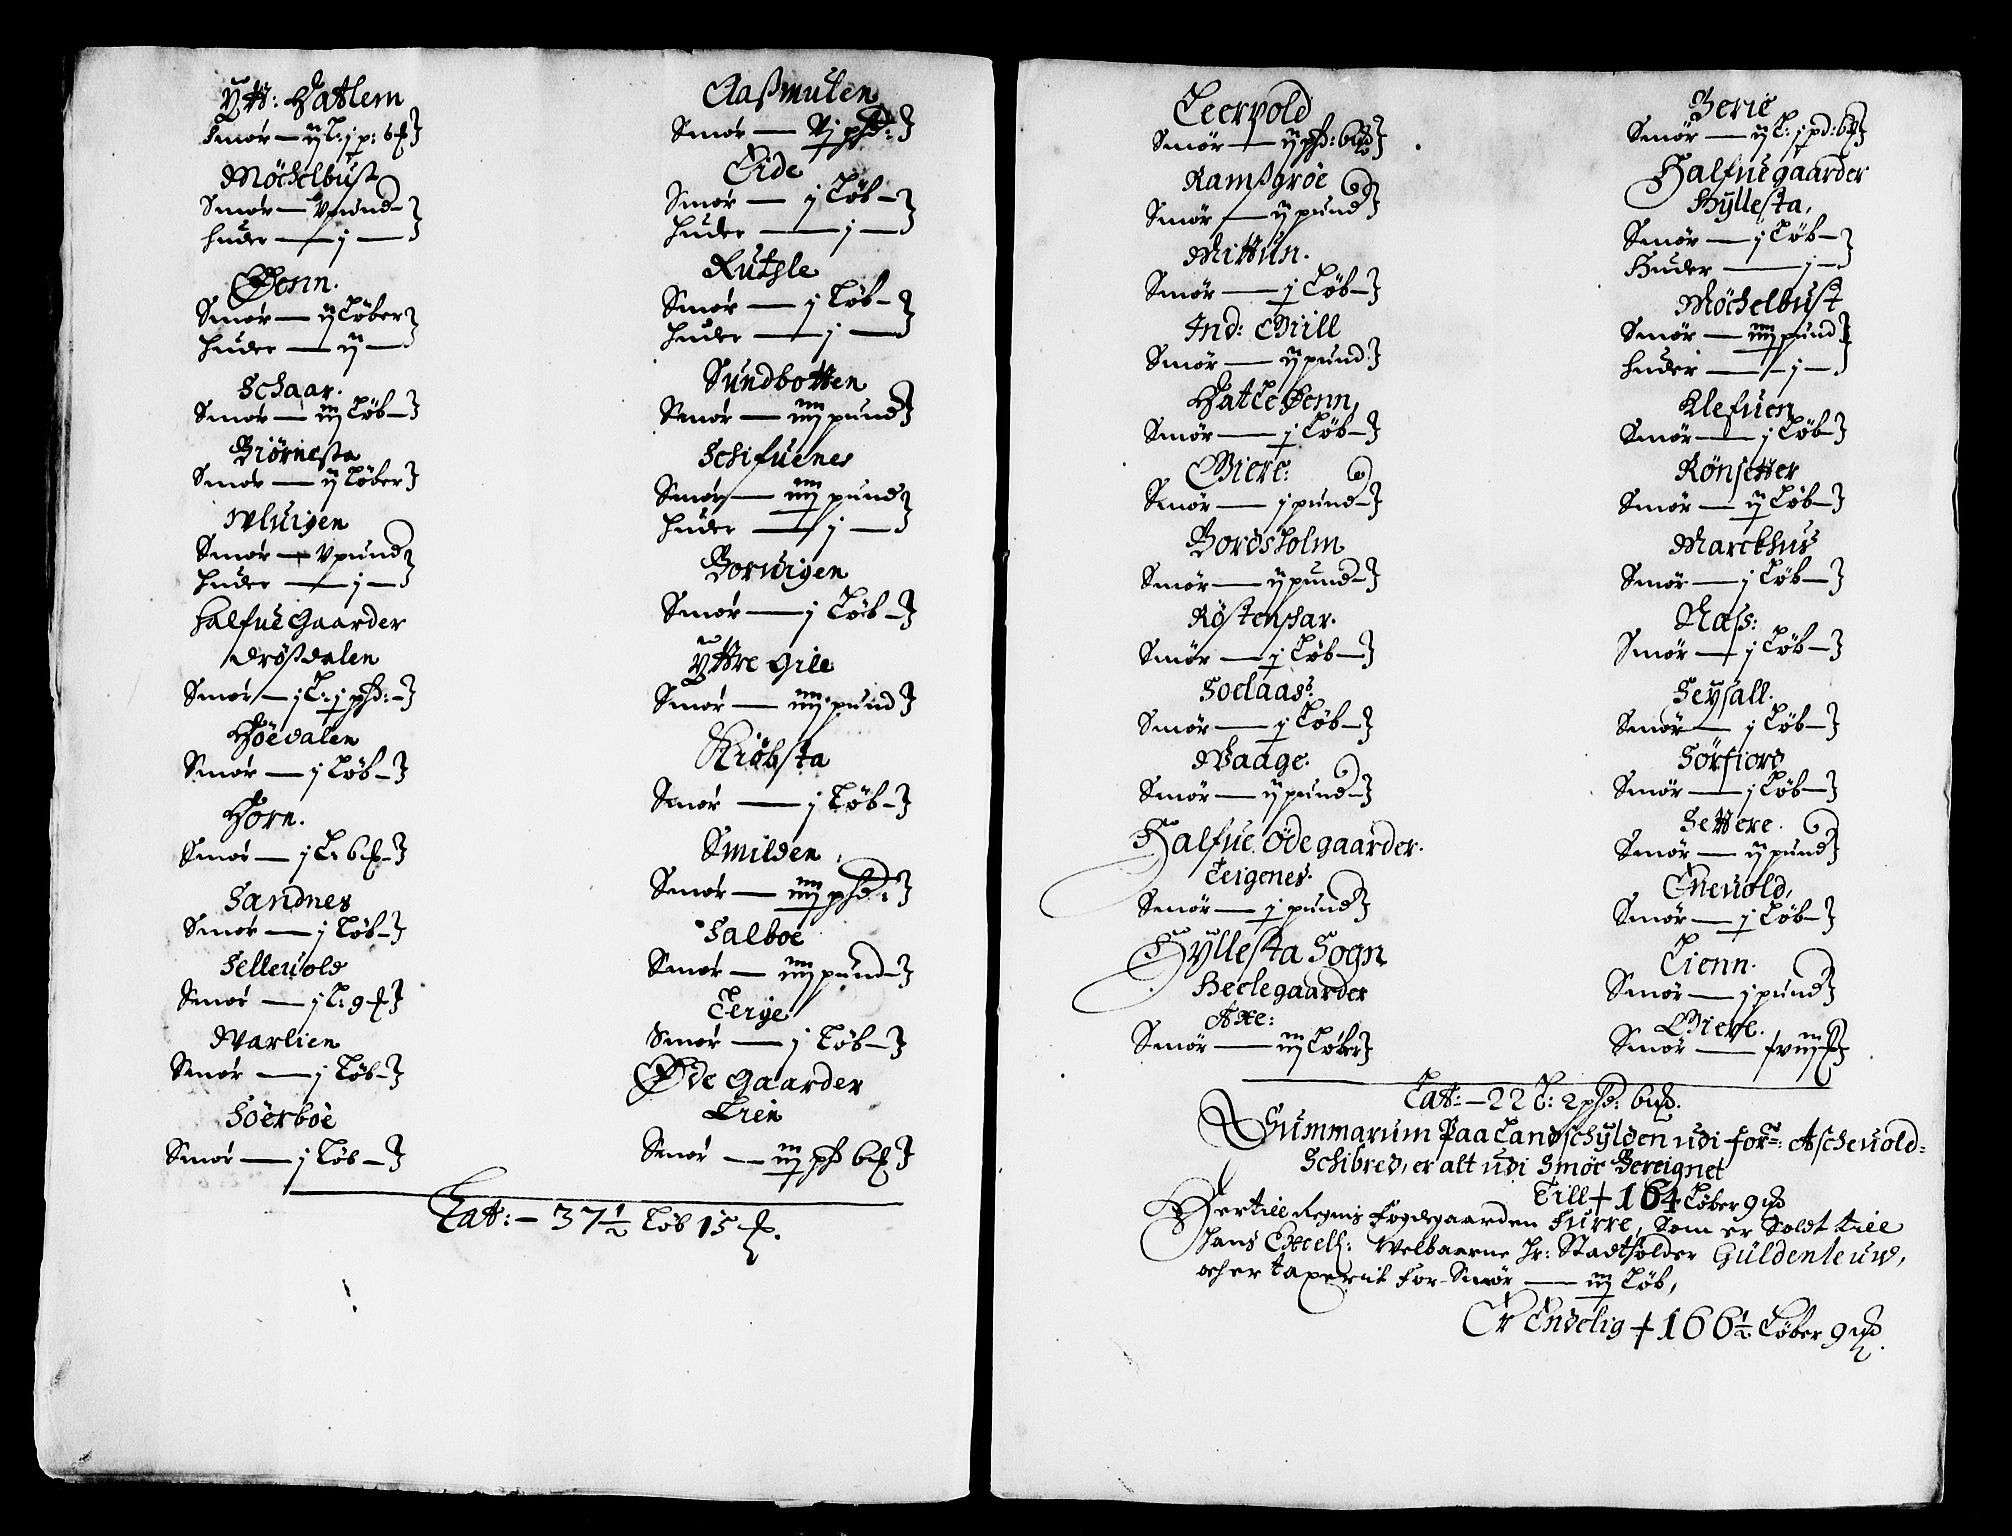 Ytt: Hatlem
Smør — ij L: j p: 6 ℔
Möchelbust
Smør — V pund
huder — j —
Øenn.
Smør — ij Løber
huder — ij —
Schaar.
Smør — iij Løb
Biørnesta
Smør — ij Løber
Wluigen
Smør — V pund
huder — j —
Halfue Gaarder
Drößdalen
Smør — j L: j pd:
Höedalen
Smør — j Løb
Horn.
Smør — j L: 6 ℔
Sandnes
Smør — j Løb
Selleuold
Smør — j L: 9 ℔
Warlien
Smør — j Løb
Söerböe
Smør — j Løb
Aaßmulen
Smør — Vj pd:
Eide
Smør — j Løb
huder — j —
Rutzle
Smør — j Løb
huder — j —
Sundbotten
Smør — iiij pund
Schifuenes
Smør — iiij pund
huder — j —
Boruigen
Smør — j Løb
Yttre Gile
Smør — iiij pund
Kiöbsta
Smør — j Løb
Smilden
Smør — iiij pd:
Salboe
Smør — iiij pund
Terge
Smør — j Løb
Øde Gaarder
Lien
Smør — iij pd 6 ℔
Lat: — 37½ Løb 15 ℔.
Leeruold
Smør — ij pd: 6 ℔
Ramßgröe
Smør — ij pund
Mittun.
Smør — j Løb
Ind: Grill
Smør — ij pund
Hatleøenn,
Smør — j Løb
Giere:
Smør — j pund
Bordsholm
Smør — ij pund
Röstenschar.
Smør — j Løb
Soelaas:
Smør — j Løb
Waage.
Smør — ij pund
Halfue Ödegaarder.
Teigenes.
Smør — j pund
Hyllesta Sogn
Heelegaarder
Axe:
Smør — iij Løber
Berie
Smør — ij L: j pd: 6 ℔
Halfuegaarder
Hyllesta,
Smør — j Løb
Huder — j —
Möchelbust
Smør — iiij pund
huder — j —
Klefuen
Smør — j Løb
Rønsetter
Smør — ij Løb
Marckhus
Smør — j Løb
Nass:
Smør — j Løb
Seysall.
Smør — j Løb
Sörfiord
Smør — j Løb
Settere.
Smør — ij pund
Eneuold,
Smør — j Løb
Lienn.
Smør — j pund
Giere.
Smør — xviij ℔
Lat: — 22 L: 2 pd: 6 ℔.
Summarum Paa Landschylden udi forne: Ascheuold-
Schibred, er alt udi Smør Bereignet
Till + 164 Løber 9 ℔
Hertill Regnis fogdegaarden Furre, Som er Soldt till
hans Excell: Welbaarne Hr: Stadtholder Güldenleuw,
och er taxerit for Smør — iij Løb,
Er Endelig + 166½ Løber 9 ℔.